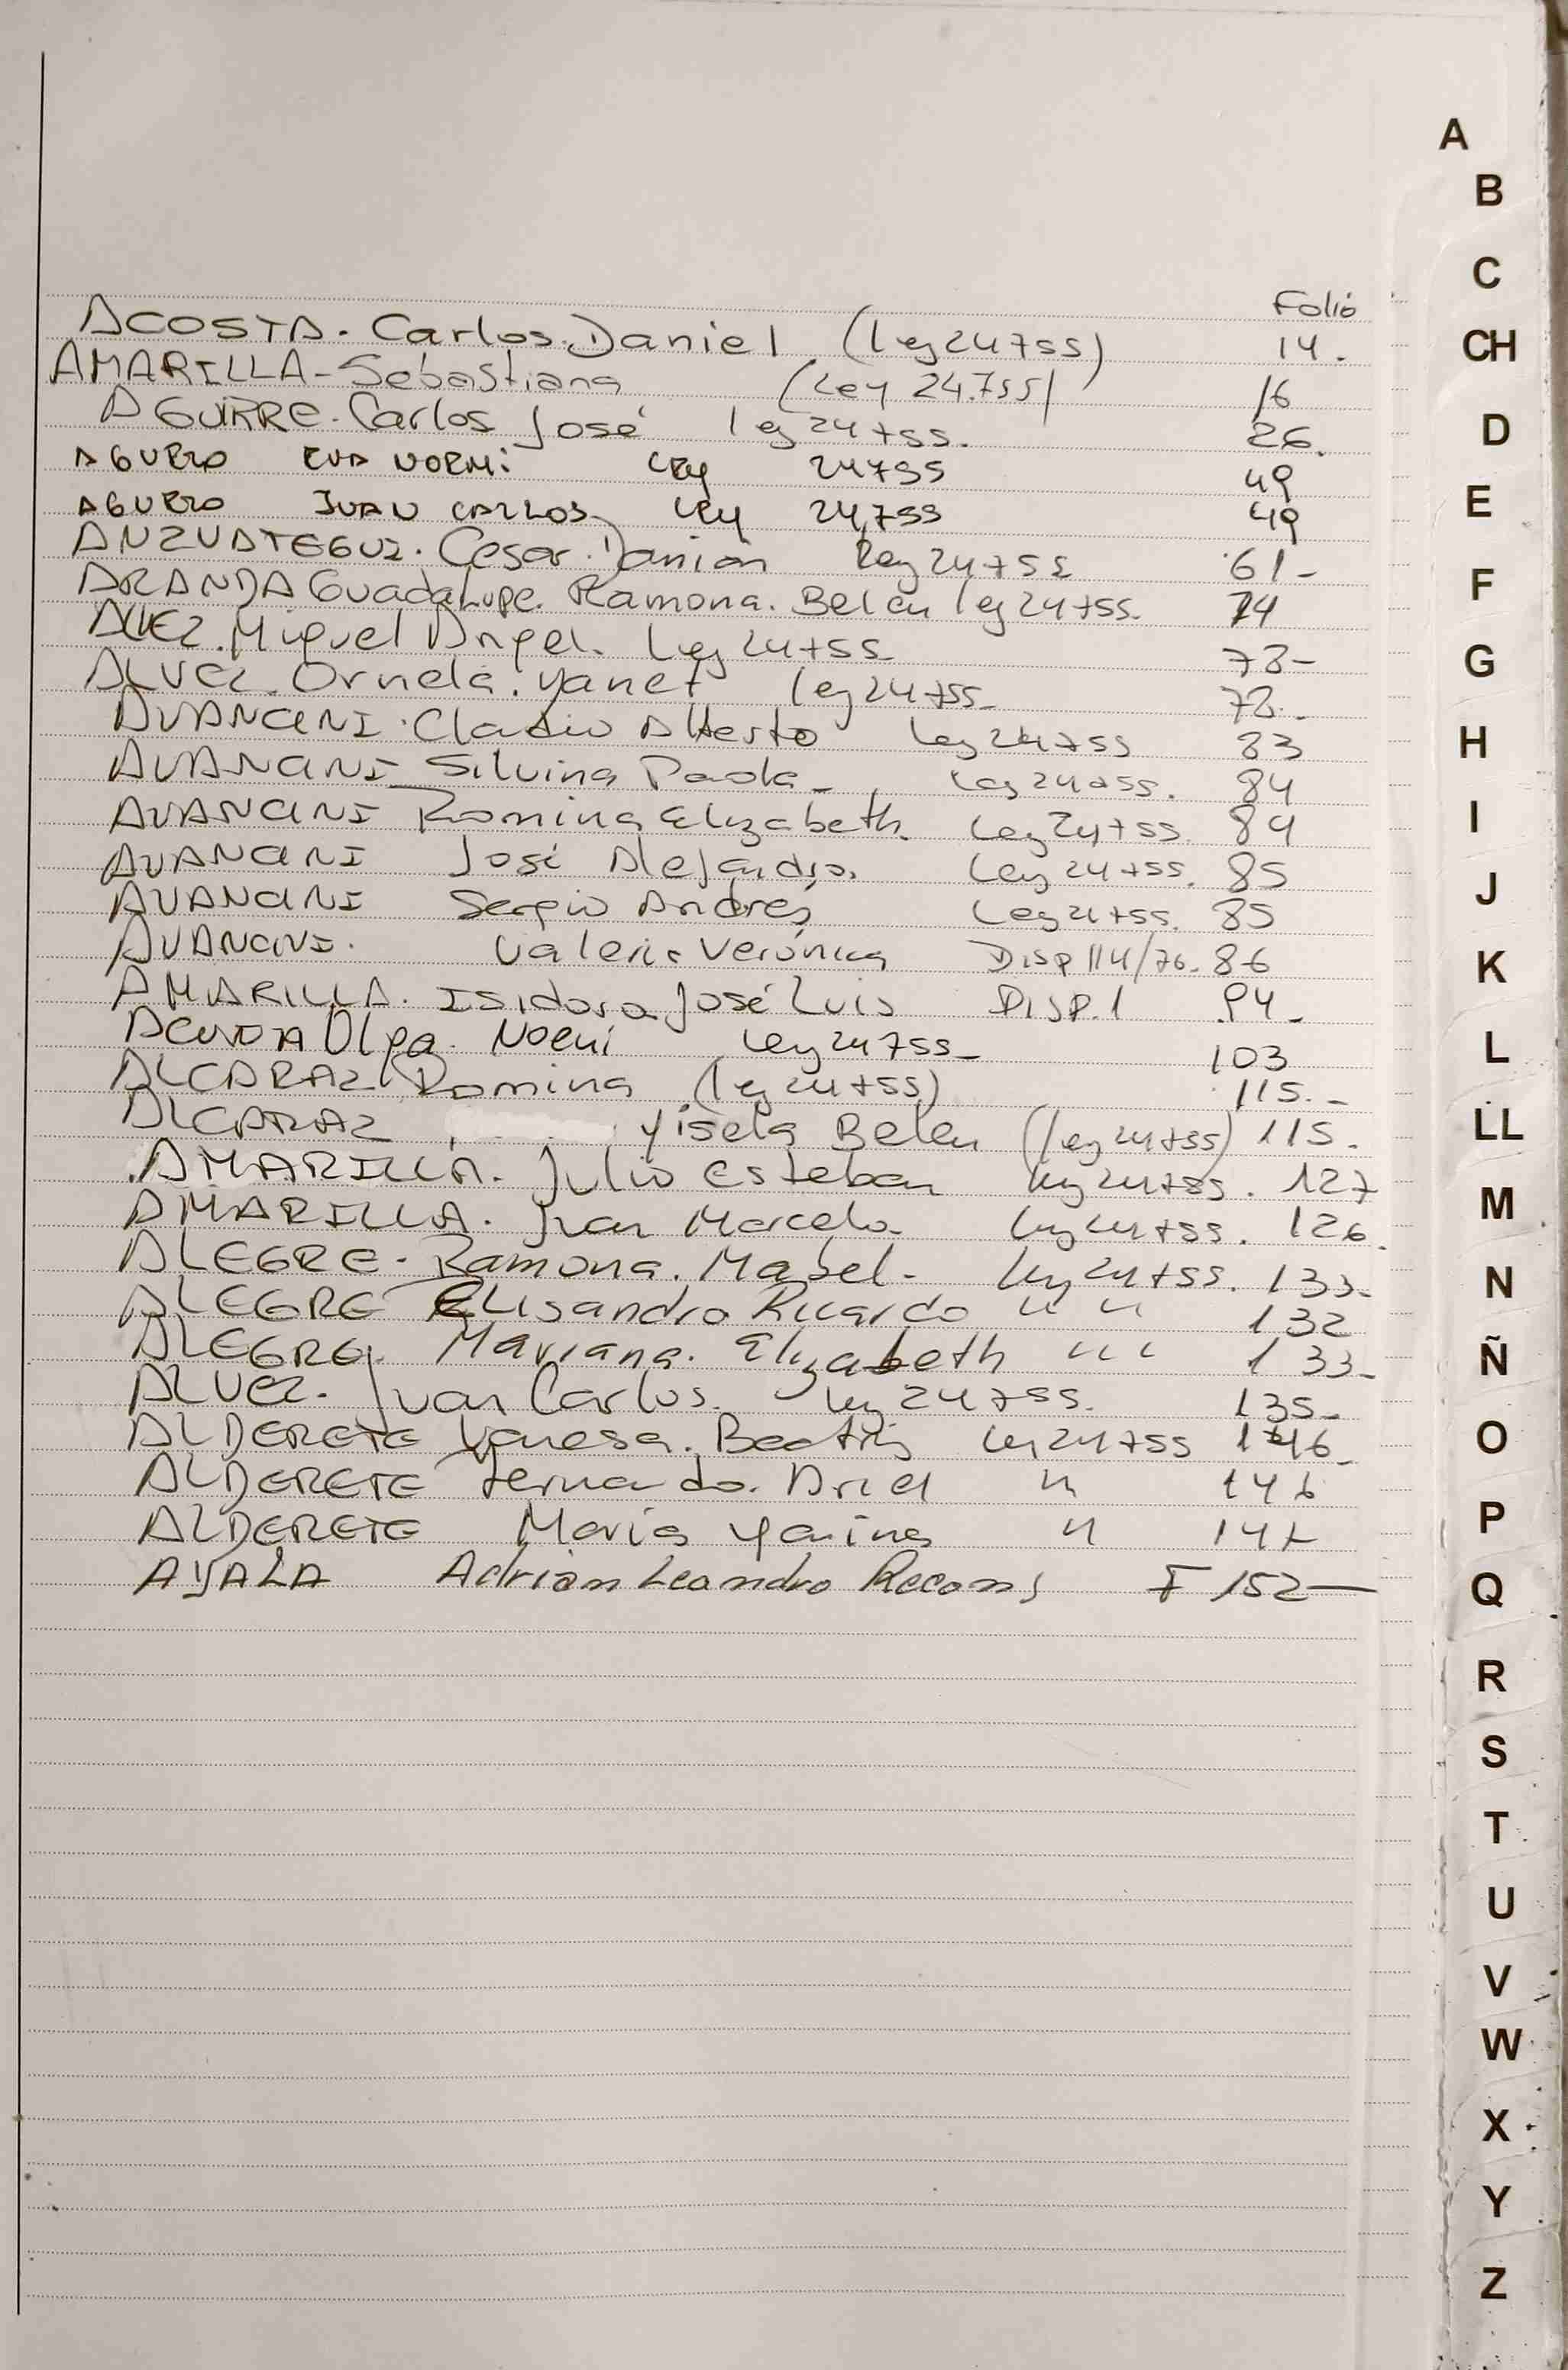 Folio
ACOSTA. Carlos. Daniel. (Ley 24755) 14.
AMARILLA - Sebastiana (Ley 24.755) 16
AGUIRRE. Carlos José Ley 24755. 26.
AGUERO EVA NOEMI Ley 24755 49
AGUERO JUAN CARLOS Ley 24,755 49
ANZUATEGUI. Cesar. Damian Ley 24755 61-
ARANDA Guadalupe. Ramona. Belen Ley 24755. 74
ALVEZ. Miguel Angel. Ley 24755 78-
ALVEZ. Ornela. Yanet Ley 24755- 78.-
AVANCINI. Claudio Alberto Ley 24755 83
AVANCINI Silvina Paola- Ley 24755. 84
AVANCINI Romina Elizabeth. Ley 24755. 84
AVANCINI José Alejandro. Ley 24755. 85
AVANCINI Sergio Andrés Ley 24755. 85
AVANCINI. Valeria Verónica Disp 114/76. 86
AMARILLA. Isidora José Luis DISP. 1 94-
ACUÑA Olga. Noemi Ley 24755- 103
ALCARAZ Romina (Ley 24755) 115.-
ALCARAZ Yisela Belen (Ley 24755) 115.
AMARILLA. Julio Esteban Ley 24755. 127
AMARILLA. Juan Marcelo. Ley 24755. 126.
ALEGRE. Ramona. Mabel. Ley 24755. 133-
ALEGRE Elisandro Ricardo " " 132
ALEGRE. Mariana. Elizabeth " " 133-
ALVEZ. Juan Carlos. Ley 24755. 135-
ALDERETE Vanesa. Beatriz Ley 24755 146-
ALDERETE Fernando. Ariel " 146
ALDERETE Maria Yanina " 147
AYALA Adrian Leandro F 152-
A
B
C
CH
D
E
F
G
H
I
J
K
L
LL
M
N
Ñ
O
P
Q
R
S
T
U
V
W
X
Y
Z